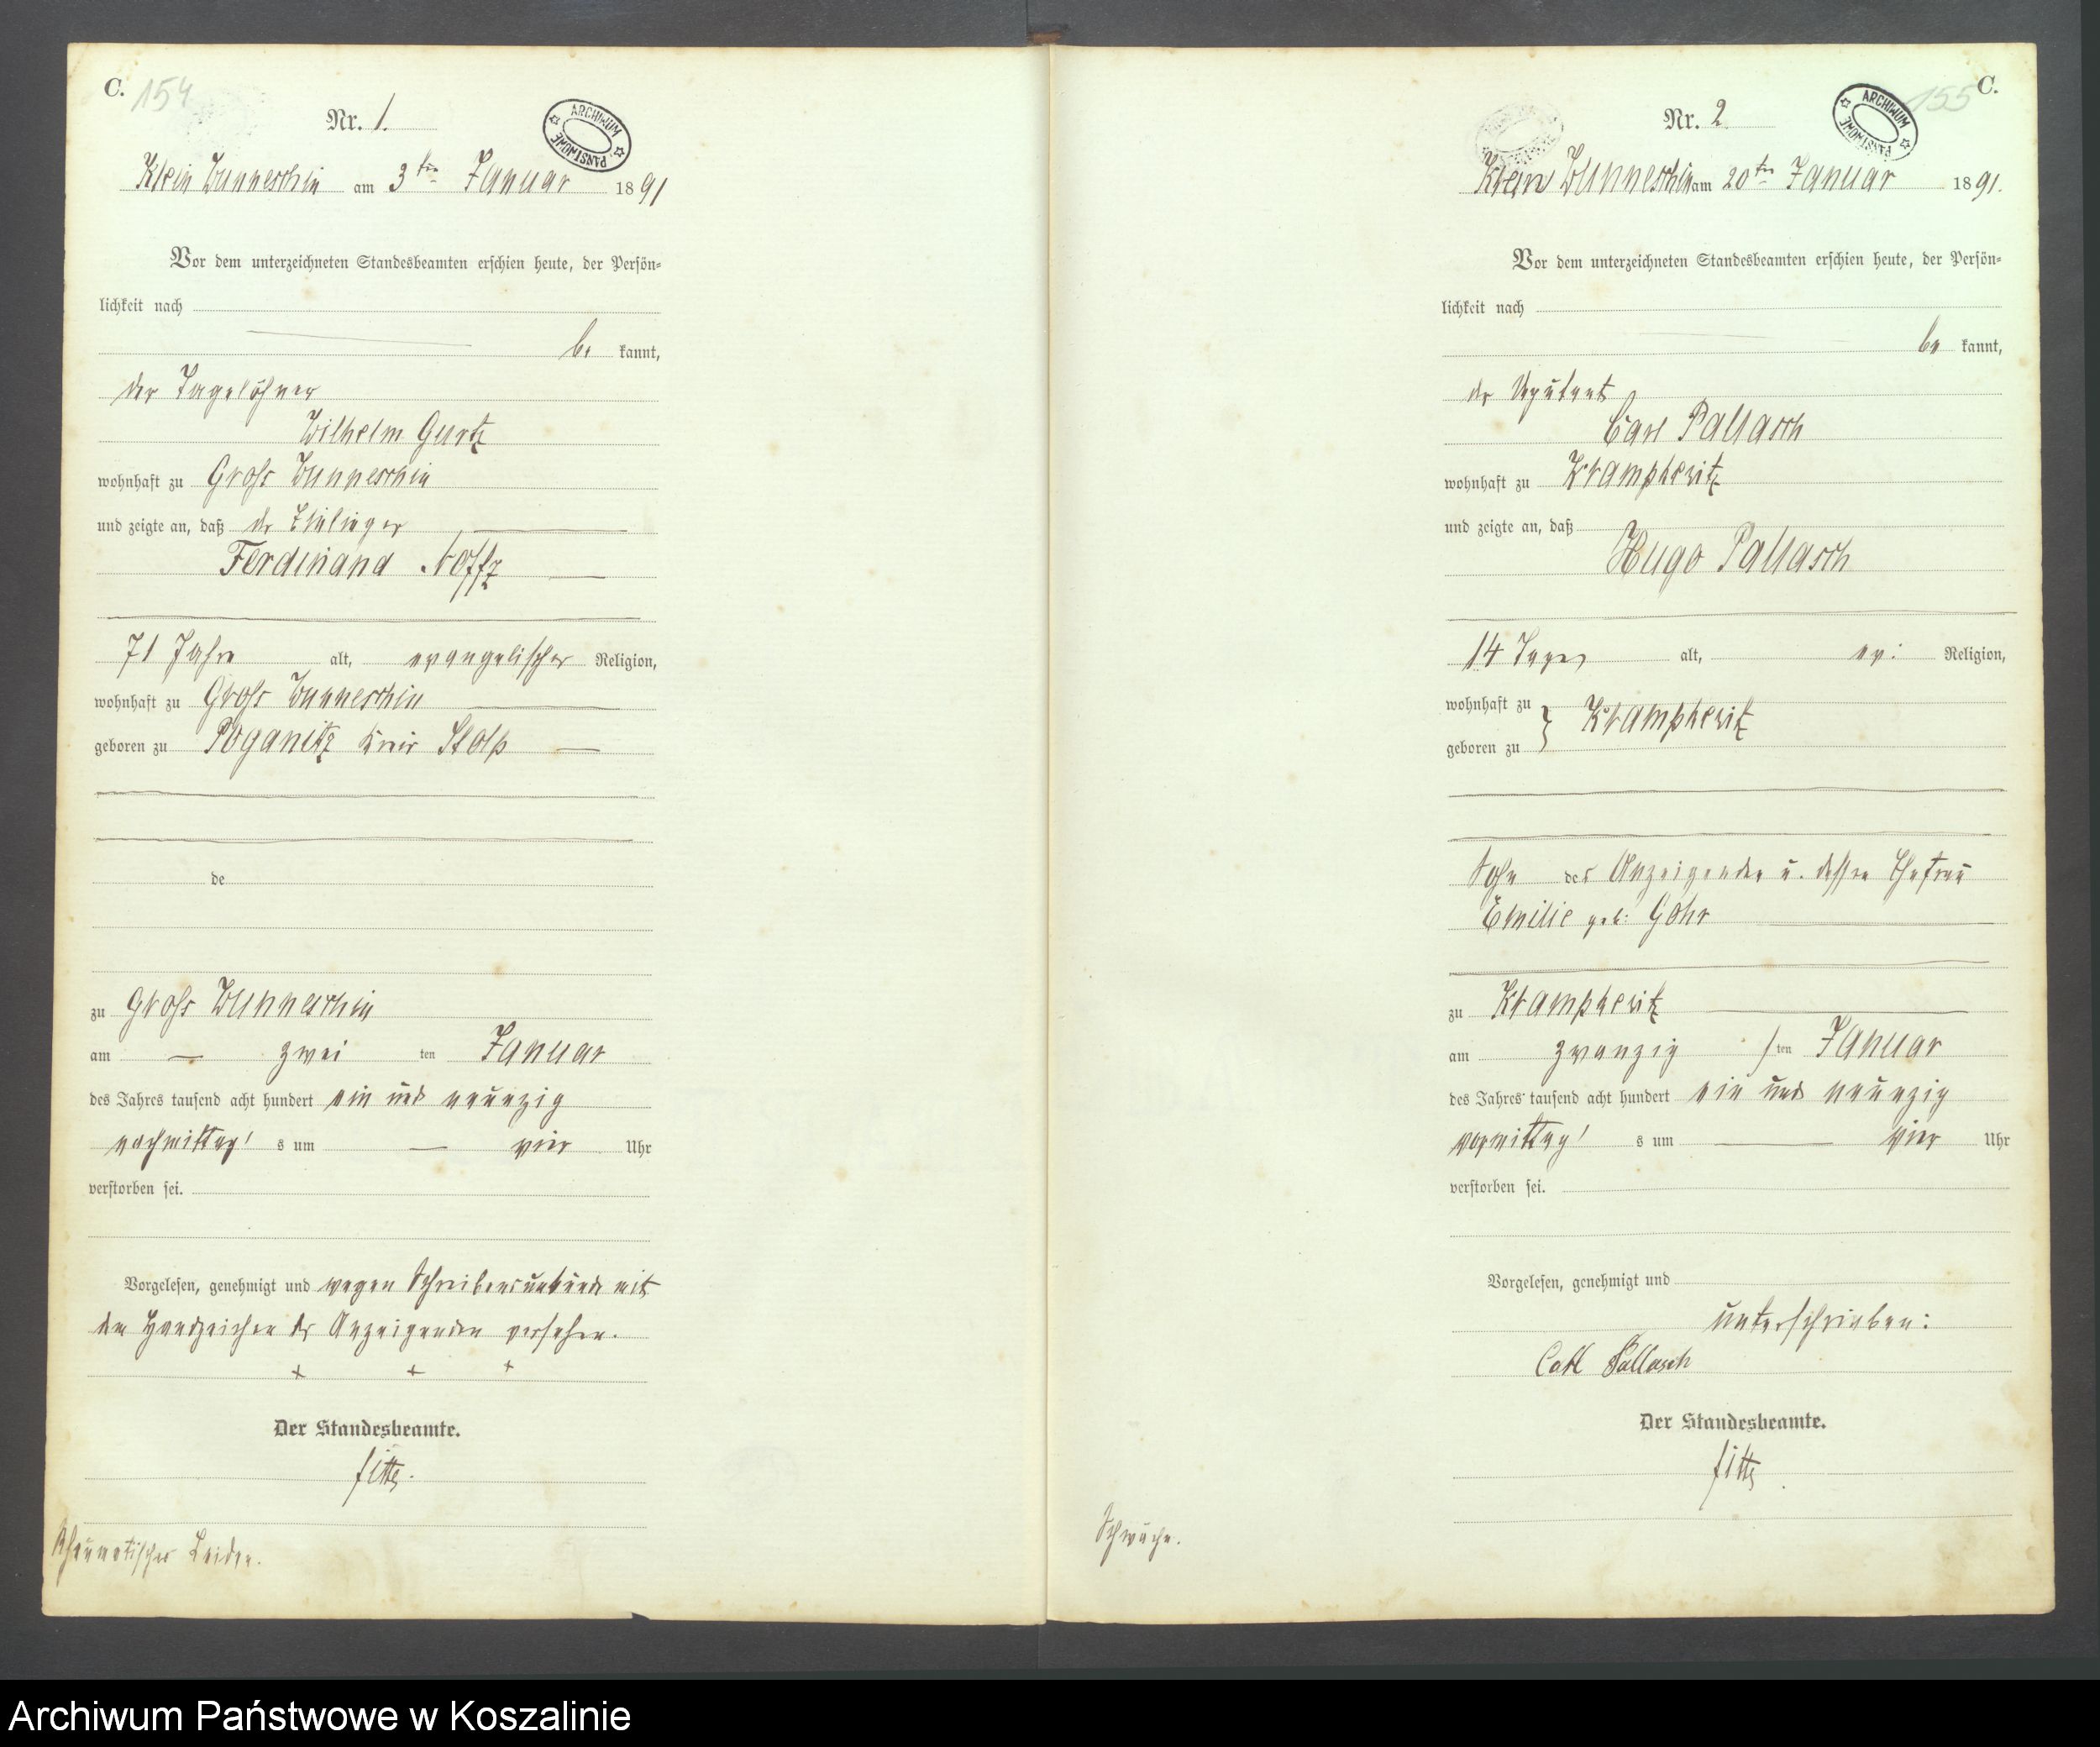 C. 154
Nr. 1.
ARCHIWUM PAŃSTWOWE
Klein Wunneschin am 3ten Januar 1891
Vor dem unterzeichneten Standesbeamten erschien heute, der Persön-
lichkeit nach
be kannt,
der Tagelöhner
Wilhelm Gurtz
wohnhaft zu Groß Wunneschin
und zeigte an, daß der Einlieger
Ferdinand Noffz
71 Jahre alt, evangelischer Religion,
wohnhaft zu Groß Wunneschin
geboren zu Poganitz Kreis Stolp
de
zu Groß Wunneschin
am zwei ten Januar
des Jahres tausend acht hundert ein und neunzig
nachmittag s um vier Uhr
verstorben sei.
Vorgelesen, genehmigt und wegen Schreibensunkunde mit
den Handzeichen des Anzeigenden versehen.
+ + +
Der Standesbeamte.
Rheumatisches Leiden.
155 C.
Nr. 2
ARCHIWUM PAŃSTWOWE
Klein Wunneschin am 20ten Januar 1891.
Vor dem unterzeichneten Standesbeamten erschien heute, der Persön-
lichkeit nach
be kannt,
der Deputant
Carl Pallasch
wohnhaft zu Krampkewitz
und zeigte an, daß
Hugo Pallasch
14 Tage alt, ev: Religion,
wohnhaft zu } Krampkewitz
geboren zu
Sohn des Anzeigenden u. dessen Ehefrau
Emilie geb: Gohr
zu Krampkewitz
am zwanzig / ten Januar
des Jahres tausend acht hundert ein und neunzig
vormittag s um vier Uhr
verstorben sei.
Vorgelesen, genehmigt und
unterschrieben:
Carl Pallasch
Der Standesbeamte.
Schwäche.
Archiwum Państwowe w Koszalinie